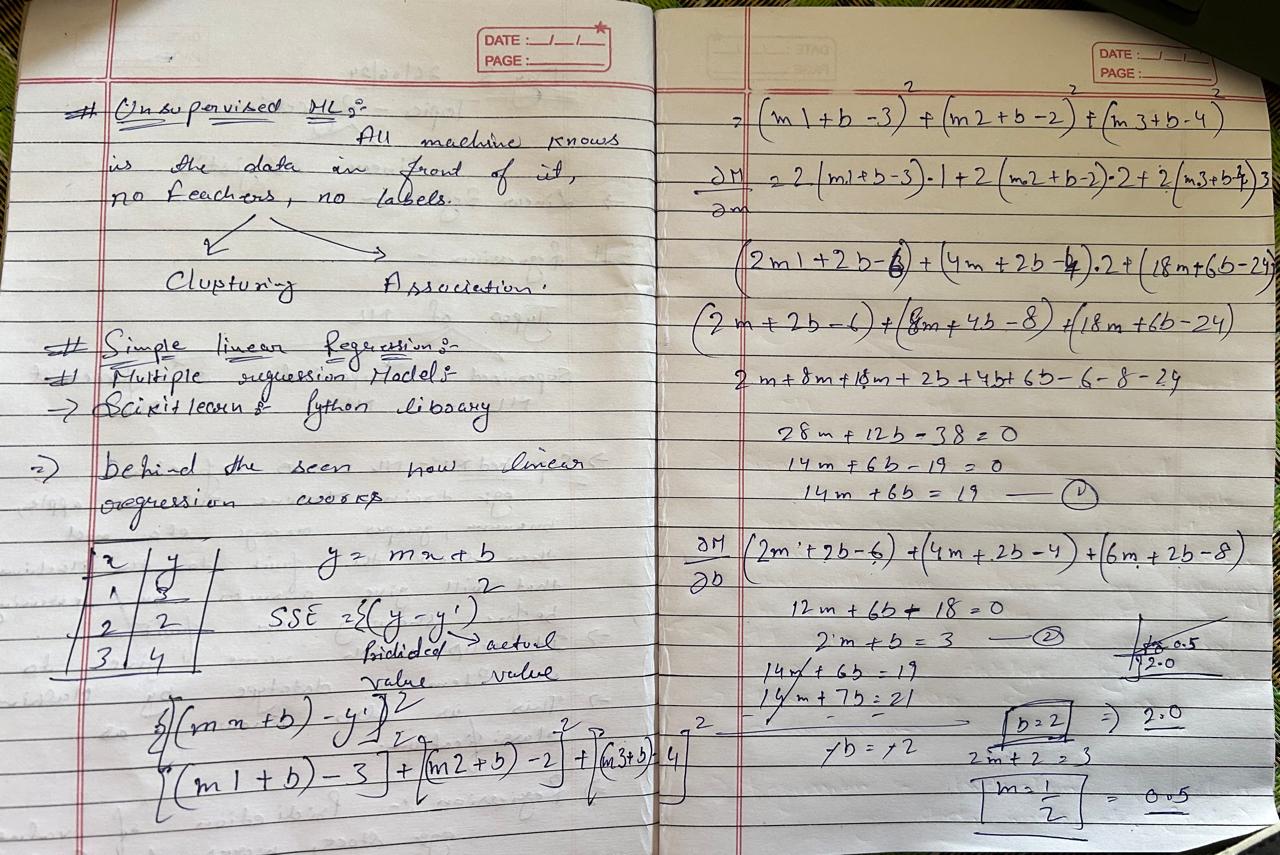 DATE :__/__/__
PAGE :
# Unsupervised ML :-
All machine knows
is the data in front of it,
no teachers, no labels.
Clusturing Association.
# Simple linear Regression :-
# Multiple regression Model :-
→ Scikitlearn :- Python library
=) behind the seen how linear
regression works
x y
1 3
2 2
3 4
y = mx + b
SSE = Σ(y - y')²
Pridicted value → actual value
Σ[(mx + b) - y']²
[(m1 + b) - 3]² + [(m2 + b) - 2]² + [(m3 + b) - 4]²
DATE :__/__/__
PAGE :
= (m1 + b - 3)² + (m2 + b - 2)² + (m3 + b - 4)²
∂M/∂m = 2(m1 + b - 3)·1 + 2(m2 + b - 2)·2 + 2(m3 + b - 4)3
(2m1 + 2b - 6) + (4m + 2b - 4)·2 + (18m + 6b - 24)
(2m + 2b - 6) + (8m + 4b - 8) + (18m + 6b - 24)
2m + 8m + 18m + 2b + 4b + 6b - 6 - 8 - 24
28m + 12b - 38 = 0
14m + 6b - 19 = 0
14m + 6b = 19 — ①
∂M/∂b (2m + 2b - 6) + (4m + 2b - 4) + (6m + 2b - 8)
12m + 6b - 18 = 0
2m + b = 3 — ②
0.5
2.0
14m + 6b = 19
14m + 7b = 21
- - -
-b = -2
b = 2 => 2.0
2m + 2 = 3
m = 1/2 = 0.5